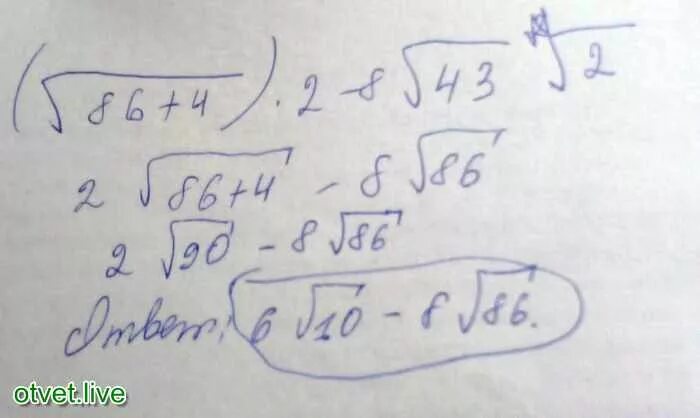 (√86+4)·2-8√43 √2
2 √86+4 - 8√86
2 √90 - 8√86
Ответ: 6√10 - 8√86.
otvet.live